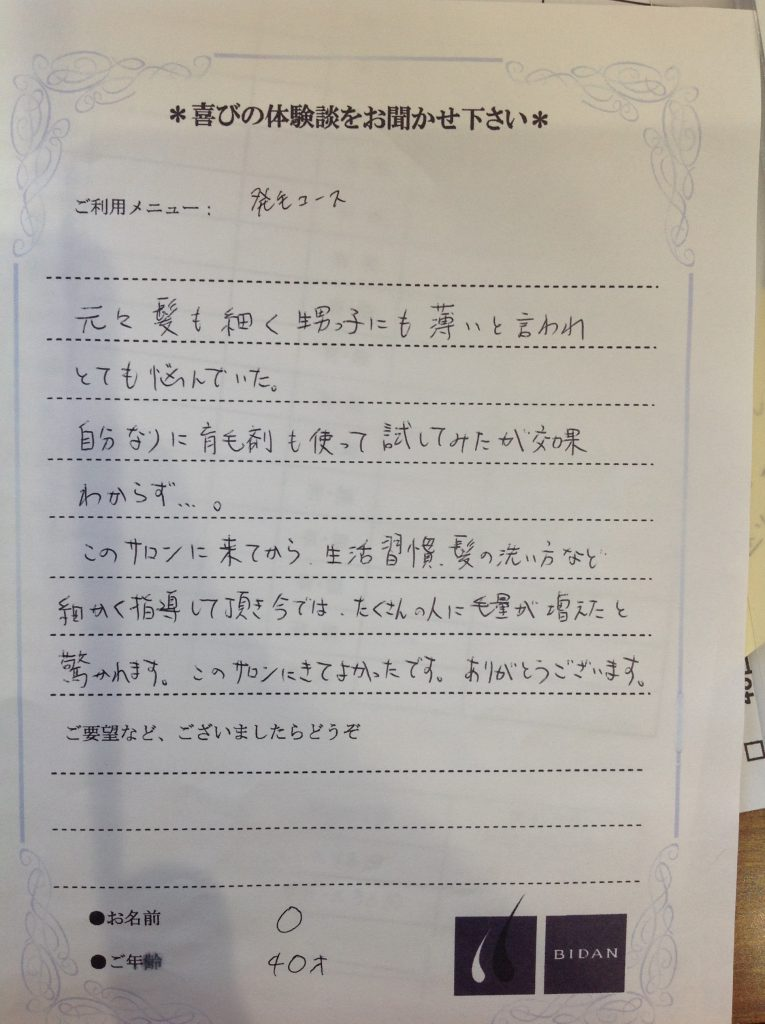 ＊喜びの体験談をお聞かせ下さい＊
ご利用メニュー： 発毛コース
元々髪も細く甥っ子にも薄いと言われ
とても悩んでいた。
自分なりに育毛剤も使って試してみたが効果
わからず…。
このサロンに来てから、生活習慣、髪の洗い方など
細かく指導して頂き今では、たくさんの人に毛量が増えたと
驚かれます。このサロンにきてよかったです。ありがとうございます。
ご要望など、ございましたらどうぞ
●お名前 O
●ご年齢 40才
BIDAN